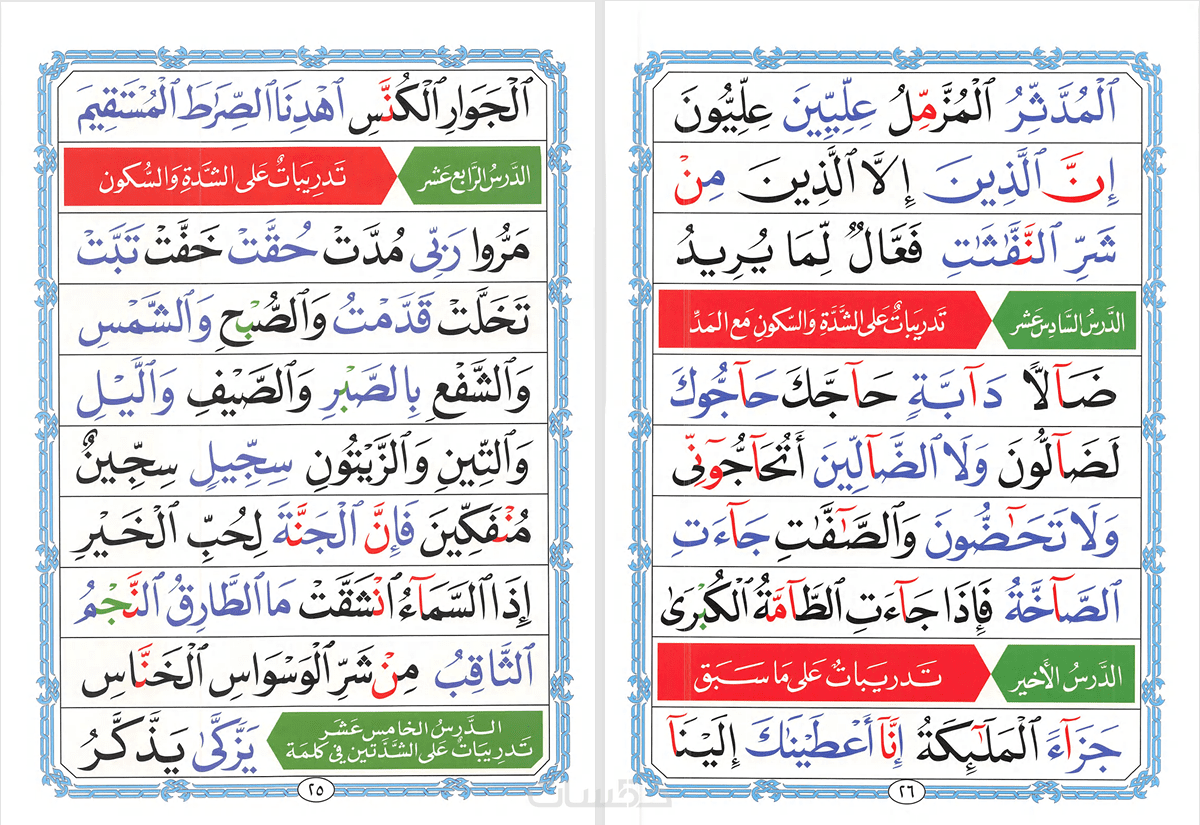 ٱلْجَوَارِ ٱلْكُنَّسِ ٱهْدِنَا ٱلصِّرَاطَ ٱلْمُسْتَقِيمَ
الدَّرسُ الرَّابع عَشَر تَدرِيبَاتٌ عَلى الشَدَّةِ وَالسُّكون
مَرُّوا رَبِّى مُدَّتْ حُقَّتْ خَفَّتْ تَبَّتْ
تَخَلَّتْ قَدَّمْتُ وَٱلصُّبْحِ وَٱلشَّمْسِ
وَٱلشَّفْعِ بِٱلصَّبْرِ وَٱلصَّيْفِ وَٱلَّيْلِ
وَٱلتِّينِ وَٱلزَّيْتُونِ سِجِّيلٍ سِجِّينٌ
مُنْفَكِّينَ فَإِنَّ ٱلْجَنَّةَ لِحُبِّ ٱلْخَيْرِ
إِذَا ٱلسَّمَآءُ ٱنْشَقَّتْ مَا ٱلطَّارِقُ ٱلنَّجْمُ
ٱلثَّاقِبُ مِنْ شَرِّ ٱلْوَسْوَاسِ ٱلْخَنَّاسِ
الـدَّرسُ الخَامس عَشَر
تَدرِيبَاتٌ عَلى الشَدَّتين في كَلمَة
يَزَّكَّىٰ يَذَّكَّرُ
٢٥
ٱلْمُدَّثِّرُ ٱلْمُزَّمِّلُ عِلِّيِّينَ عِلِّيُّونَ
إِنَّ ٱلَّذِينَ إِلَّا ٱلَّذِينَ مِنْ
شَرِّ ٱلنَّفَّٰثَٰتِ فَعَّالٌ لِّمَا يُرِيدُ
الدَّرسُ السَّادس عَشَر تَدرِيبَاتٌ عَلى الشَدَّةِ وَالسُّكونِ مَع المَدِّ
ضَآلًّا دَآبَّةٍ حَآجَّكَ حَآجُّوكَ
لَضَآلُّونَ وَلَا ٱلضَّآلِّينَ أَتُحَآجُّوٓنِّى
وَلَا تَحَٰٓضُّونَ وَٱلصَّٰٓفَّٰتِ جَآءَتِ
ٱلصَّآخَّةُ فَإِذَا جَآءَتِ ٱلطَّآمَّةُ ٱلْكُبْرَىٰ
الدَّرسُ الأَخير تَـدرِيبَـاتٌ عَلى مَا سَبَق
جَزَآءً ٱلْمَلَٰٓئِكَةُ إِنَّآ أَعْطَيْنَٰكَ إِلَيْنَآ
٢٦
خمسات